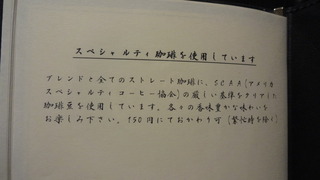 スペシャルティ珈琲を使用しています
ブレンドと全てのストレート珈琲に、SCAA(アメリカ
スペシャルティコーヒー協会)の厳しい基準をクリアした
珈琲豆を使用しています。各々の香味豊かな味わいを
お楽しみ下さい。150円にておかわり可(繁忙時を除く)